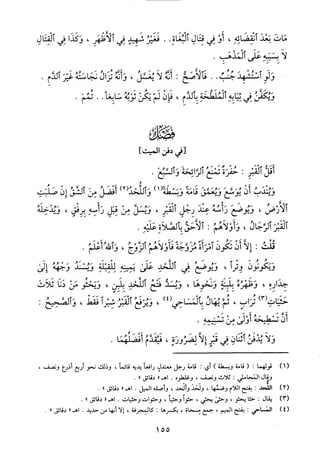 مَاتَ بَعْدَ ٱنْقِضَائِهِ ، أَوْ فِي قِتَالِ ٱلْبُغَاةِ.. فَغَيْرُ شَهِيدٍ فِي ٱلأَظْهَرِ ، وَكَذَا فِي ٱلْقِتَالِ
لاَ بِسَبَبِهِ عَلَى ٱلْمَذْهَبِ .
وَلَوِ ٱسْتُشْهِدَ جُنُبٌ.. فَٱلأَصَحُّ : أَنَّهُ لاَ يُغَسَّلُ ، وَأَنَّهُ تُزَالُ نَجَاسَتُهُ غَيْرُ ٱلدَّمِ .
وَيُكَفَّنُ فِي ثِيَابِهِ ٱلْمُلَطَّخَةِ بِٱلدَّمِ ، فَإِنْ لَمْ يَكُنْ ثَوْبُهُ سَابِغاً.. تُمِّمَ .
فَصْلٌ
[في دفن الميت]
أَقَلُّ ٱلْقَبْرِ : حُفْرَةٌ تَمْنَعُ ٱلرَّائِحَةَ وَٱلسَّبُعَ .
وَيُنْدَبُ أَنْ يُوَسَّعَ وَيُعَمَّقَ قَامَةً وَبَسْطَةً(١) وَٱللَّحْدُ(٢) أَفْضَلُ مِنَ ٱلشَّقِّ إِنْ صَلُبَتِ
ٱلأَرْضُ ، وَيُوضَعَ رَأْسُهُ عِنْدَ رِجْلِ ٱلْقَبْرِ ، وَيُسَلَّ مِنْ قِبَلِ رَأْسِهِ بِرِفْقٍ ، وَيُدْخِلَهُ
ٱلْقَبْرَ ٱلرِّجَالُ ، وَأَوْلاَهُمُ : ٱلأَحَقُّ بِٱلصَّلاَةِ عَلَيْهِ .
قُلْتُ : إِلاَّ أَنْ تَكُونَ ٱمْرَأَةً مُزَوَّجَةً فَأَوْلاَهُمُ ٱلزَّوْجُ ، وَٱللهُ أَعْلَمُ .
وَيَكُونُونَ وِتْراً ، وَيُوضَعُ فِي ٱللَّحْدِ عَلَى يَمِينِهِ لِلْقِبْلَةِ وَيُسْنَدُ وَجْهُهُ إِلَى
جِدَارِهِ ، وَظَهْرُهُ بِلَبِنَةٍ وَنَحْوِهَا ، وَيُسَدُّ فَتْحُ ٱللَّحْدِ بِلَبِنٍ ، وَيَحْثُو مَنْ دَنَا ثَلاَثَ
حَثَيَاتِ(٣) تُرَابٍ ، ثُمَّ يُهَالُ بِٱلْمَسَاحِي(٤) ، وَيُرْفَعُ ٱلْقَبْرُ شِبْراً فَقَطْ ، وَٱلصَّحِيحُ :
أَنَّ تَسْطِيحَهُ أَوْلَى مِنْ تَسْنِيمِهِ .
وَلاَ يُدْفَنُ ٱثْنَانِ فِي قَبْرٍ إِلاَّ لِضَرُورَةٍ ، فَيُقَدَّمُ أَفْضَلُهُمَا .
(١) قولهما : ( قامة وبسطة ) أي : قامة رجل معتدل رافعاً يديه قائماً ، وذلك نحو أربع أذرع ونصف ،
وقال المحاملي : ثلاث ونصف ، وغلطوه . اهـ « دقائق » .
(٢) اللحد : بفتح اللام وضمها ، ولحد وألحد ، وأصله الميل . اهـ « دقائق » .
(٣) يقال : حثا يحثو ، وحثى يحثي ، حثواً وحثياً ، وحثوات وحثيات . اهـ « دقائق » .
(٤) المساحي : بفتح الميم ، جمع مسحاة ، بكسرها : كالمجرفة ، إلا أنها من حديد . اهـ « دقائق » .
١٥٥